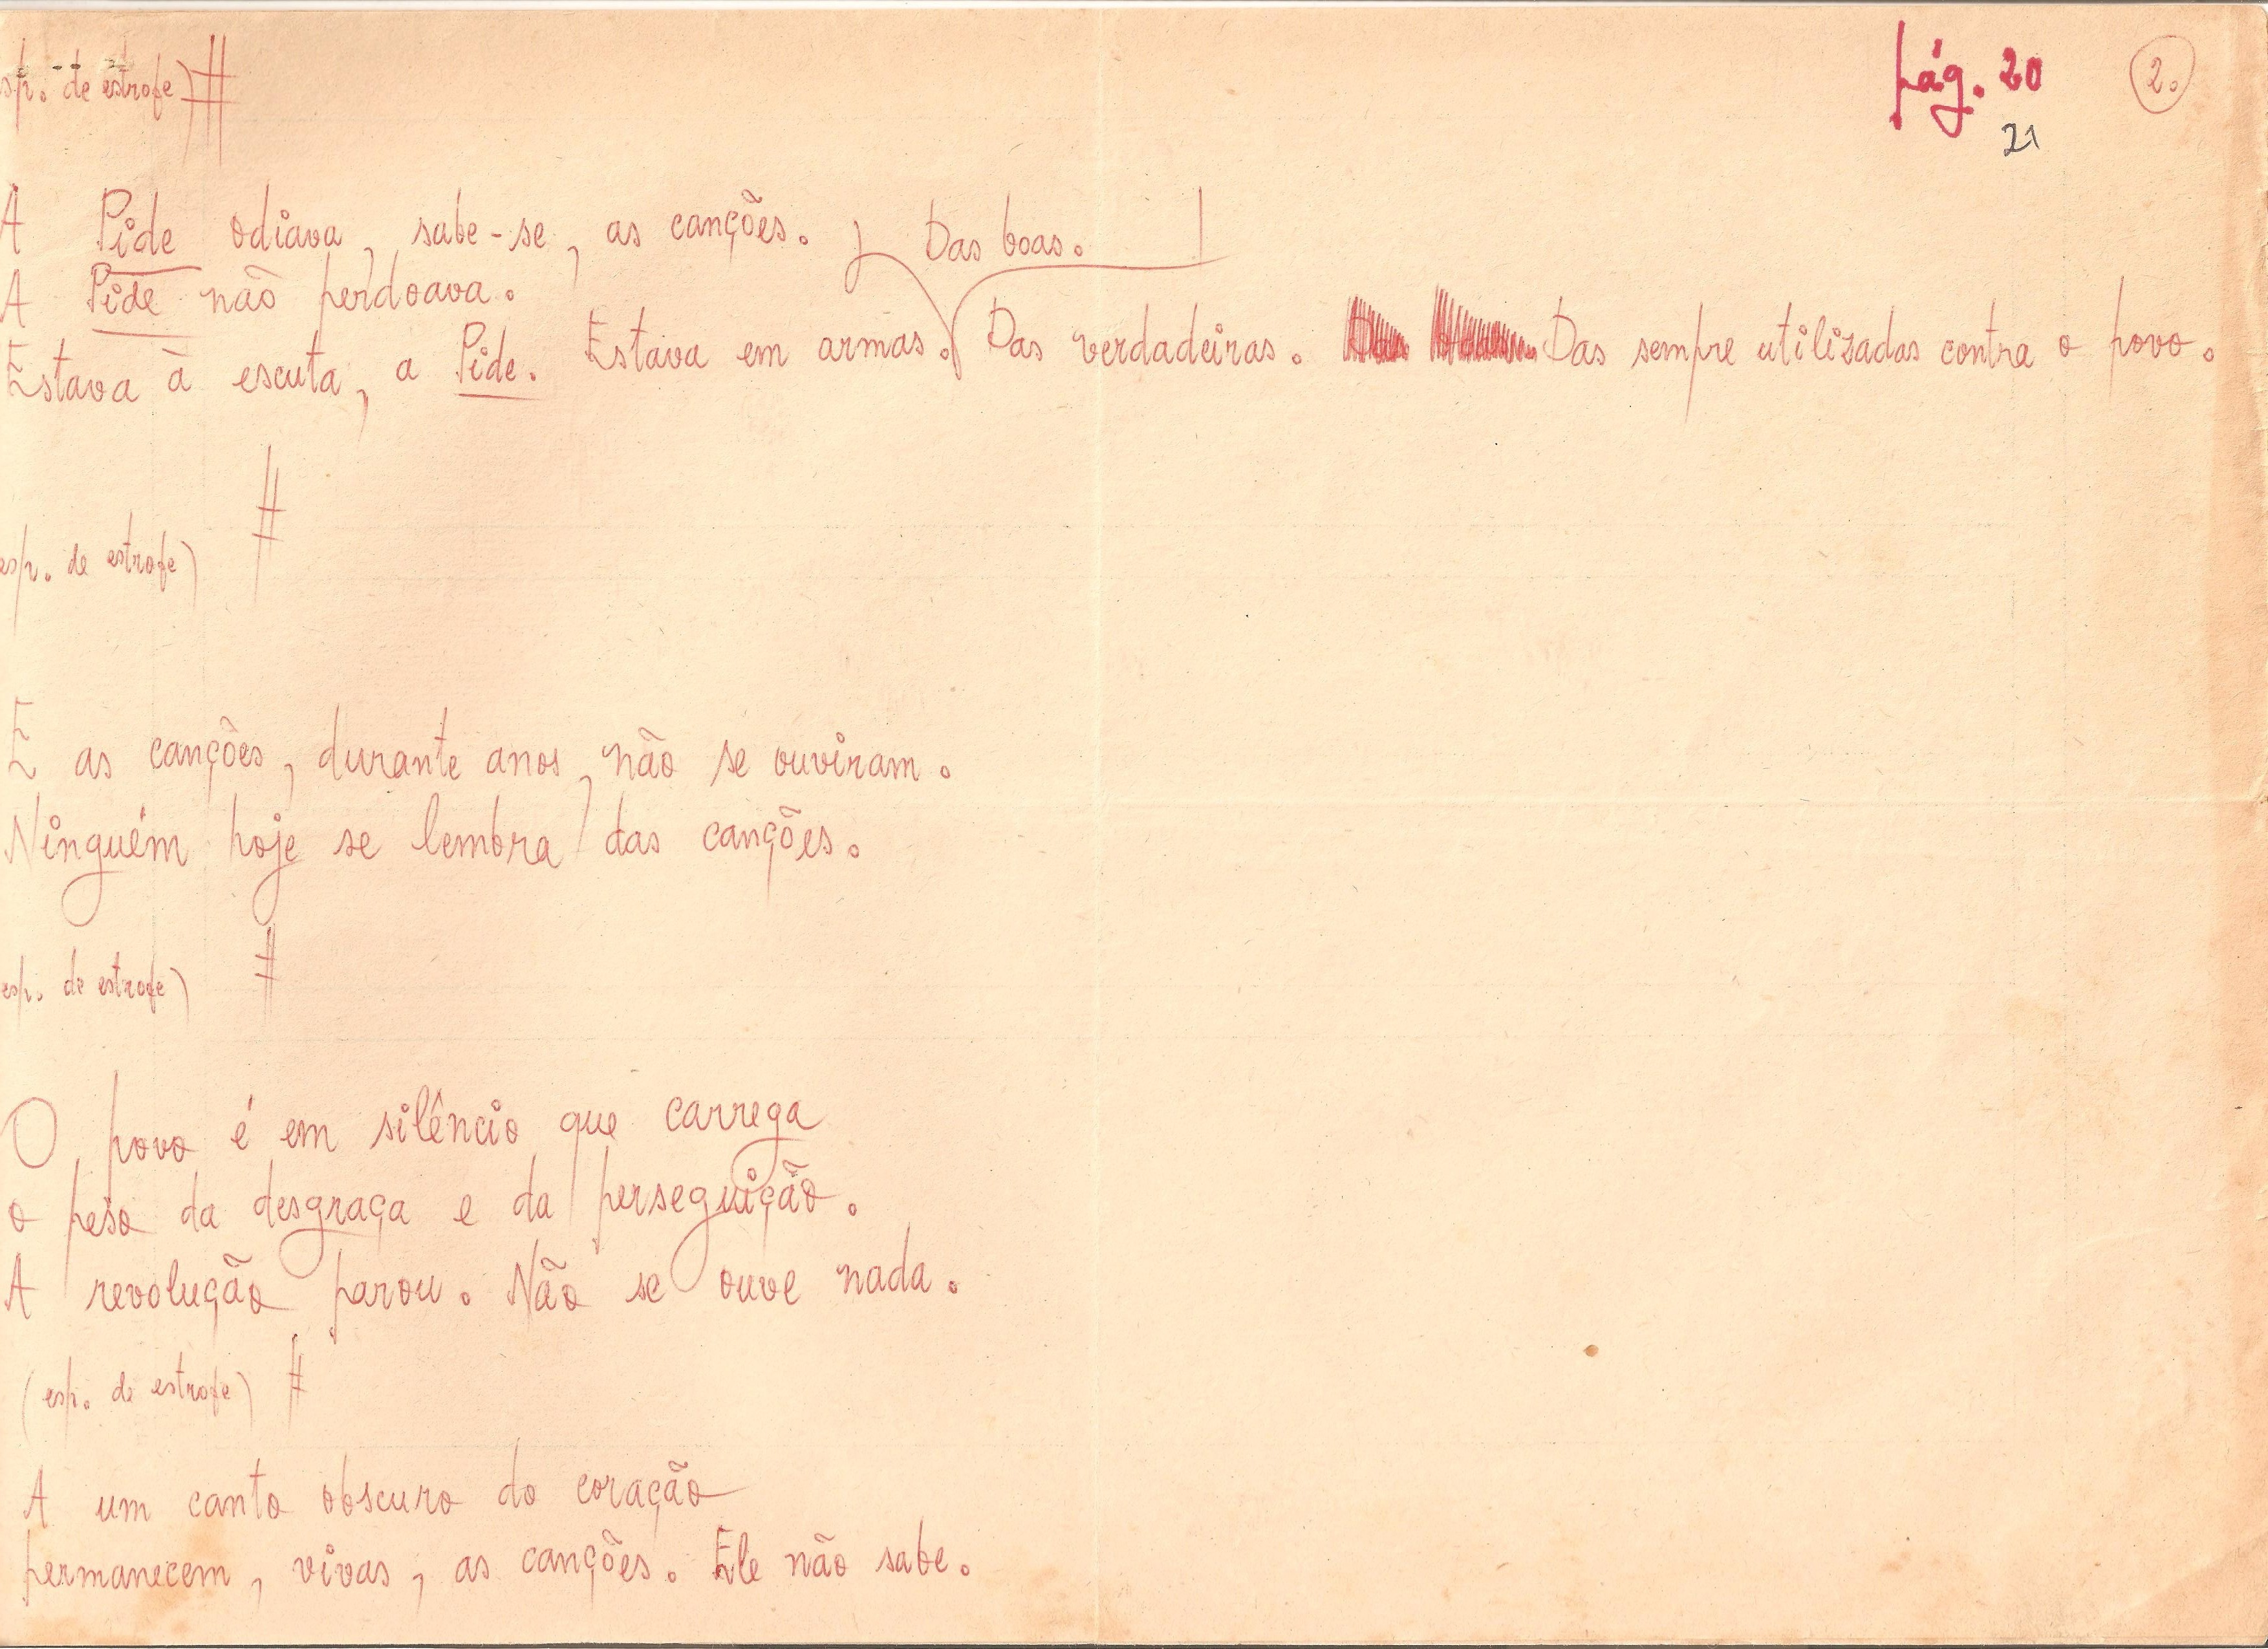 sp. de estrofe) #
pág. 20
2.
21
A Pide odiava, sabe-se, as canções. Das boas.
A Pide não perdoava.
Estava à escuta, a Pide. Estava em armas. Das verdadeiras. Das sempre utilizadas contra o povo.
#
esp. de estrofe)
E as canções, durante anos, não se ouviram.
Ninguém hoje se lembra das canções.
#
esp. de estrofe)
O povo é em silêncio que carrega
o peso da desgraça e da perseguição.
A revolução parou. Não se ouve nada.
(esp. de estrofe) #
A um canto obscuro do coração
permanecem, vivas, as canções. Ele não sabe.